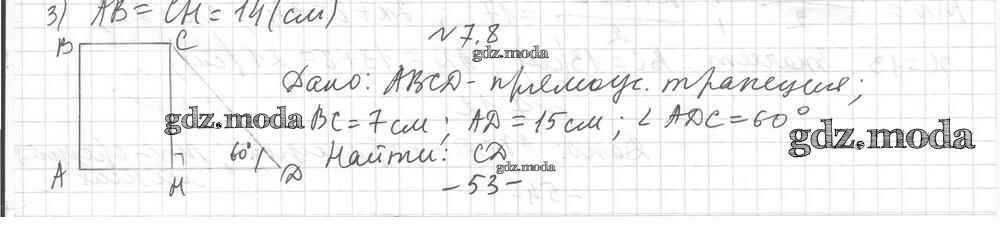 3) AB = CH = 14 (см)
№ 7,8
gdz.moda
B C
Дано: ABCD - прямоуг. трапеция;
gdz.moda BC = 7 см; AD = 15 см; ∠ADC = 60°
gdz.moda
60° Найти: CD
gdz.moda
A H D
- 53 -